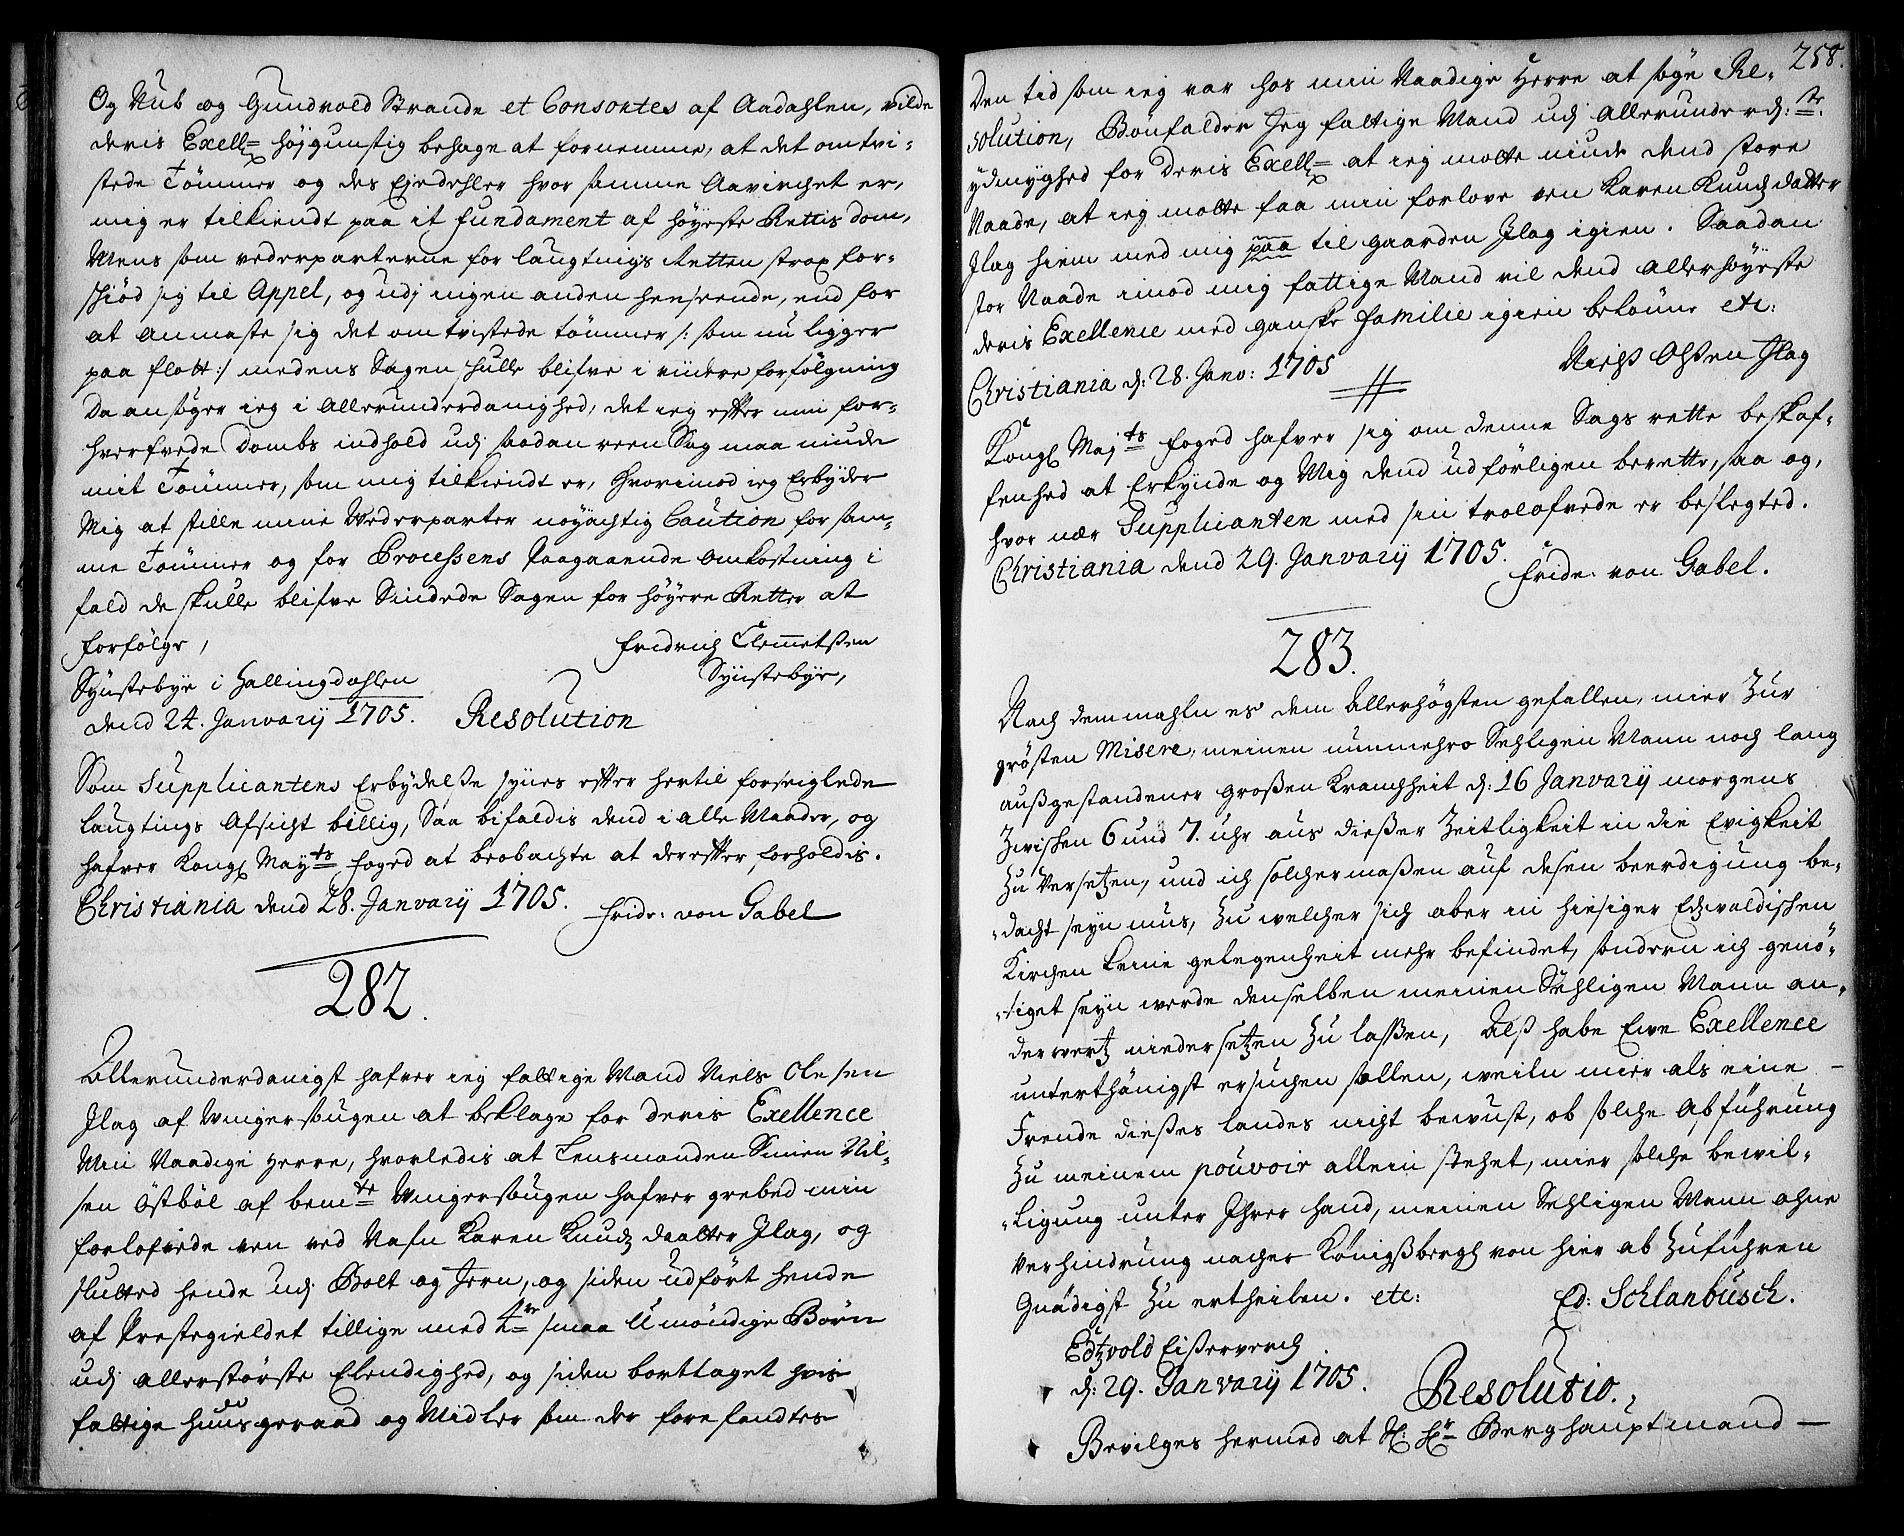 Og Nub og Gundvold Strande et Consortes af Aadahlen, vilde
deris Exell= højgunstig behage at fornemme, at det omtvi-
stede Tömmer og des Ejedehler hvor samme Aavirchet er,
mig er tilkiendt paa it fundament af höyeste Rettis dom,
Mens som vederparterne for laugtings Retten strax for-
skiød sig til Appel, og udj ingen anden henseende, end for
at anmaste sig det omtvistede tömmer /: som nu ligger
paa flott :/ medens Sagen skulle blifve i videre forfölgning
Da ansöger ieg i Allerunderdanighed, det ieg efter min for-
hverfvede Dombs indhold udj saadan reen Sag maa niude
mit Tömmer, som mig tilkiendt er, Hvorimod ieg Erbyder
Mig at stille mine Vederparter nöyachtig Caution for sam-
me Tömmer og for Processens Paagaaende Omkostning i
fald de skulle blifve Sindede Sagen for höyere Retter at
forfölge,
Fridrich Clemetsen
Synstebye,
Synstebye i Hallingdahlen
dend 24. Janvarij 1705.
Resolution
Som Supplicantens Erbydelse synes efter hertil forseiglede
Laugtings Afsicht billig, Saa bifaldis dend i alle Maader, og
hafver Kongl Maÿts foged at beobachte at derefter forholdis.
Christiania dend 28. Janvarij 1705.
Frider: von Gabel
282.
Allerunderdanigst hafver ieg fattige Mand Niels Olesen
Ilag af Vinger sougen at beklage for deris Exellence
Min Naadige Herre, hvorledis at Lensmanden Simen Nil-
sen Östböl af bemte Vingersougen hafver grebed min
forlofvede ven ved Nafn Karen Knudz daatter Ilag, og
slutted hende udj Bolt og Jern, og siden udfört hende
af Prestegieldet tillige med 4re smaa Umöndige Börn
udj allerstörste Elendighed, og siden borttaget hvis
fattige huusgeraad og Midler som der forefandtes
258.
Den tid som ieg var hos min Naadige Herre at söge Re-
solution, Bönfalder Jeg fattige Mand udj allerunderd:ste
ydmyghed for Deris Exell= at ieg motte niude dend store
Naade, at ieg motte faa min forlove ven Karen Knudz datter
Ilag hiem med mig paa til gaarden Ilag igien. Saadan
stor Naade imod mig fattige Mand vil dend allerhöyeste
deris Exellence med ganske familie igien belönne etc:
Christiania d: 28. Janv: 1705
Nielß Olßen Ilag
Kongl Majts foged hafver sig om denne Sags rette beskaf-
fenhed at Erkynde og Mig dend udförligen berette, saa og,
hvor nær Supplicanten med sin trolofvede er beslegted.
Christiania dend 29. Janvarij 1705.
Frider: von Gabel.
283.
Nach demmahln es dem Allerhögsten gefallen, mier Zur
grösten Misere, meinen nunmehro Sehligen Mann nach lang
außgestandener großen Kranchheit d: 16 Janvarij morgens
Zwischen 6 und 7. uhr aus dießer Zeitligkeit in die Evigkeit
zu Versetzen, und ich solchermaßen auf desen beerdigung be-
dacht seyn mus, Zu welcher sich aber in hiesiger Edzvoldischen
Kirchen keine gelegenheit mehr befindet, sondern ich genö-
tiget seyn werde denselben meinen Sehligen Mann an-
derwertz niedersetzen Zu lassen, Alß habe Ewe Exellence
unterthänigst ersuchen sollen, weiln mier als eine
Frende dießes landes nicht bewust, ob solche abführung
Zu meinem pouvoir allein stehet, mier solche bewil-
ligung unter Ihrer hand, meinen Sehligen Mann ohne
verhindrung nacher Königßbergh von hier ab zuführen
Gnädigst Zu ertheilen. etc:
Ed: Schlanbusch.
Edzvold Eisserverch
d: 29. Janvarij 1705.
Resolutio.
Bevilges hermed at Sl: Hr Berghauptmand